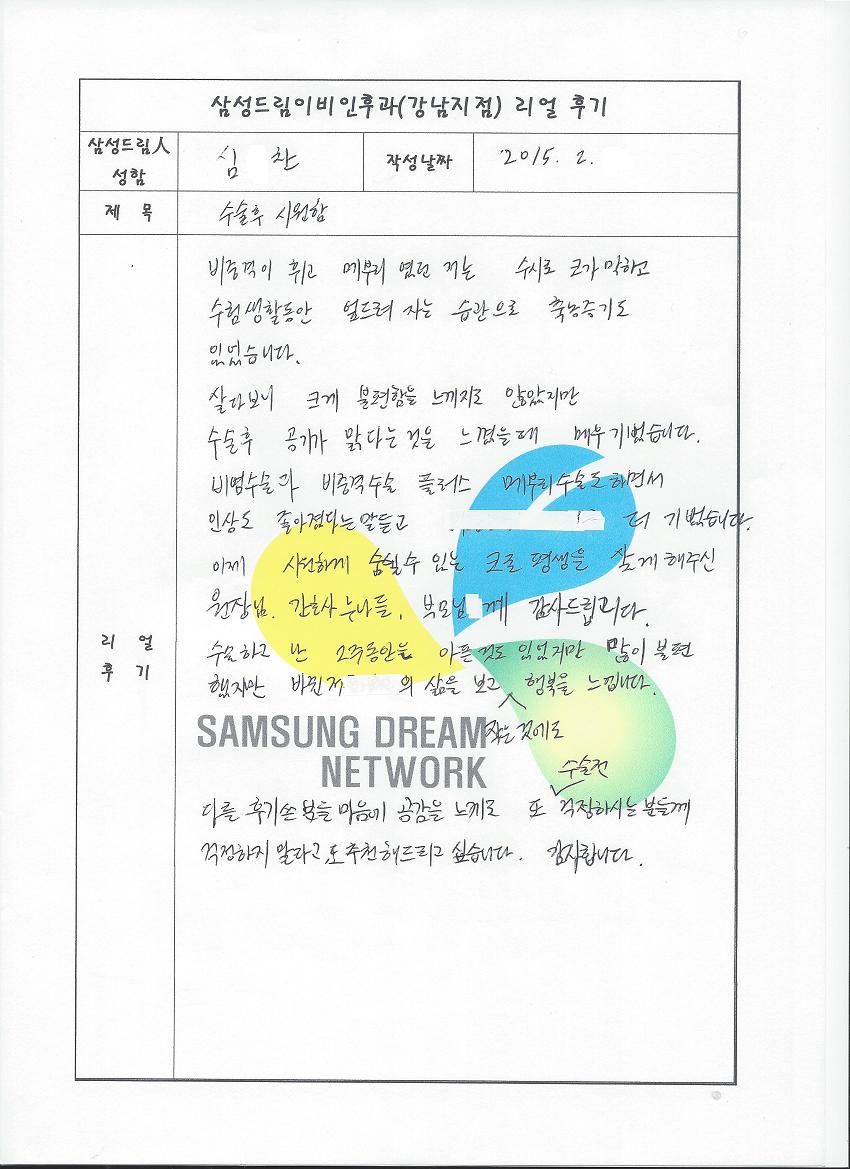 삼성드림이비인후과(강남지점) 리얼 후기
삼성드림人 성함
심 찬
작성날짜
2015. 2.
제 목
수술후 시원함
리 얼
후 기
비중격이 휘고 메부리 였던 저는 수시로 코가 막히고
수험생활동안 엎드려 자는 습관으로 축농증기도
있었습니다.
살다보니 크게 불편함을 느끼지도 않았지만
수술후 공기가 맑다는것을 느꼈을때 매우 기뻤습니다.
비염수술과 비중격수술 플러스 메부리수술도 하면서
인상도 좋아졌다는말듣고 더 기뻤습니다.
이제 시원하게 숨쉴수 있는 코로 평생을 살게 해주신
원장님, 간호사 누나들, 부모님 께 감사드립니다.
수술하고 난 2주동안은 아픈것도 있었지만 많이 불편
했지만 바뀐 저 의 삶을 보고 행복을 느낍니다.
작은 것에도
SAMSUNG DREAM
NETWORK
수술전
다른 후기쓴 분들 마음에 공감을 느끼고 또 걱정하시는 분들께
걱정하지 말라고 또 추천해드리고 싶습니다. 감사합니다.